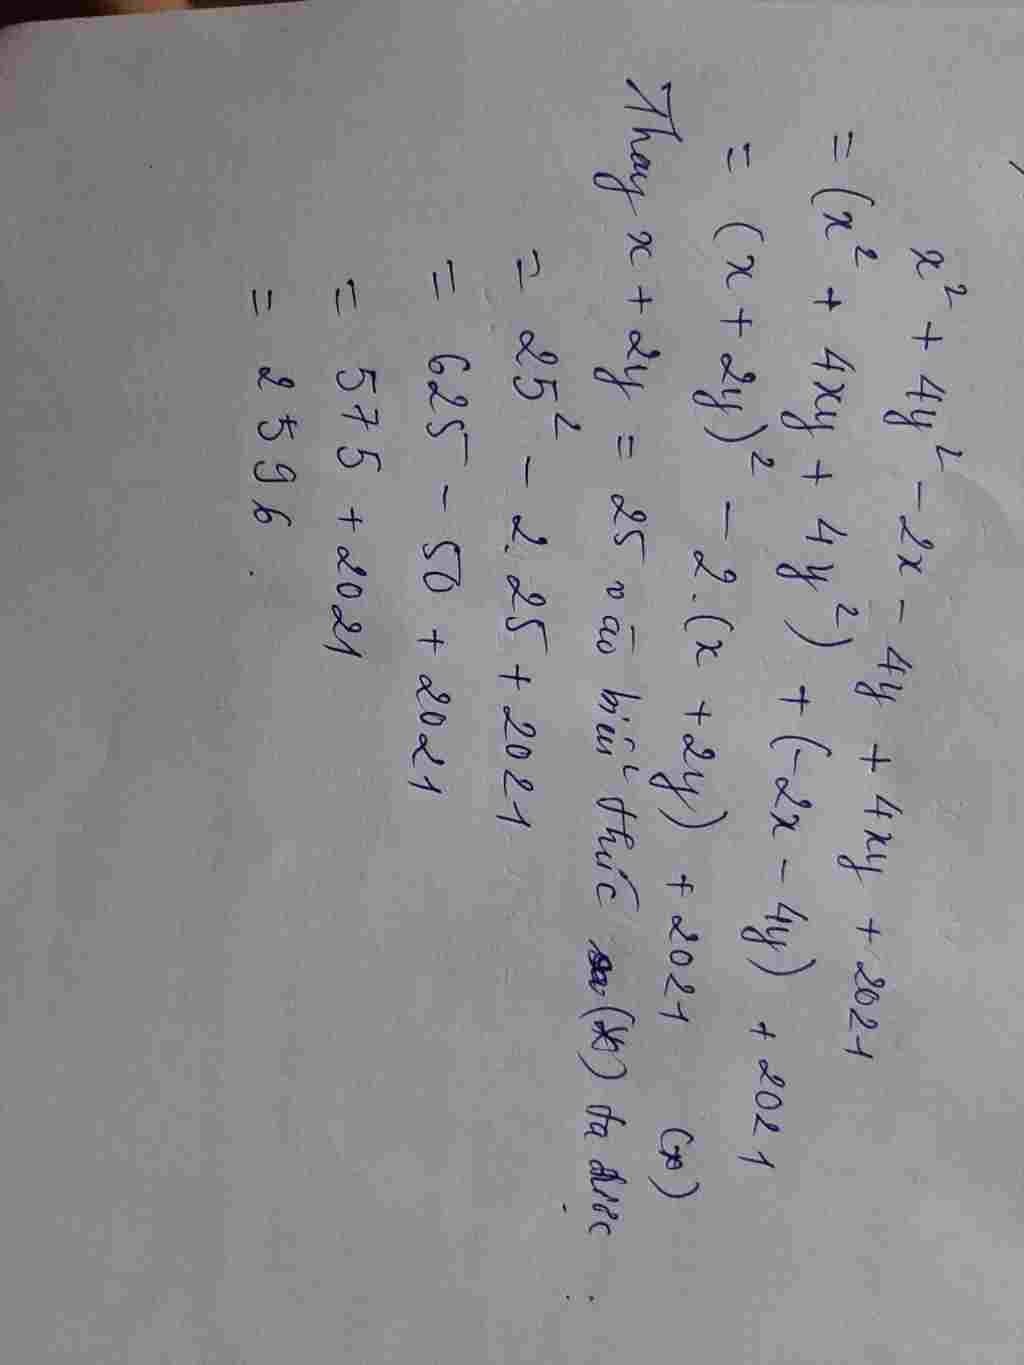 x² + 4y² - 2x - 4y + 4xy + 2021
= (x² + 4xy + 4y²) + (-2x - 4y) + 2021
= (x + 2y)² - 2.(x + 2y) + 2021 (*)
Thay x + 2y = 25 vào biểu thức (*) ta được :
= 25² - 2.25 + 2021
= 625 - 50 + 2021
= 575 + 2021
= 2596.